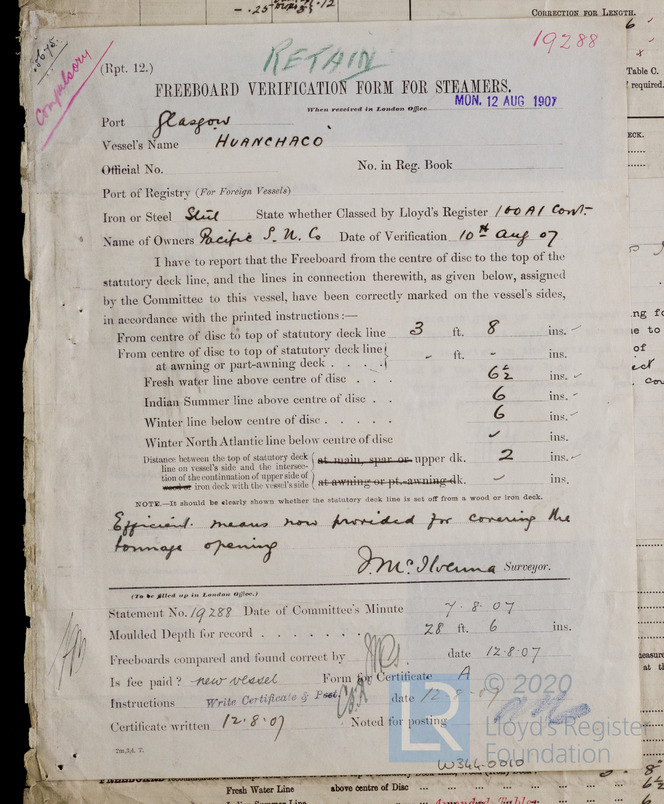 CORRECTION FOR LENGTH.
RETAIN
19288
Compulsory
(Rpt. 12.)
FREEBOARD VERIFICATION FORM FOR STEAMERS.
When received in London Office MON. 12 AUG 1907
Port Glasgow
Vessel's Name HUANCHACO
Official No. No. in Reg. Book
Port of Registry (For Foreign Vessels)
Iron or Steel Steel State whether Classed by Lloyd's Register 100A1 Cont.
Name of Owners Pacific S. N. Co Date of Verification 10th Aug 07
I have to report that the Freeboard from the centre of disc to the top of the
statutory deck line, and the lines in connection therewith, as given below, assigned
by the Committee to this vessel, have been correctly marked on the vessel's sides,
in accordance with the printed instructions:—
From centre of disc to top of statutory deck line 3 ft. 8 ins.
From centre of disc to top of statutory deck line
at awning or part-awning deck . . . . - ft. - ins.
Fresh water line above centre of disc . . . 6½ ins.
Indian Summer line above centre of disc . . 6 ins.
Winter line below centre of disc . . . . . 6 ins.
Winter North Atlantic line below centre of disc ins.
Distance between the top of statutory deck
line on vessel's side and the intersec-
tion of the continuation of upper side of
wood or iron deck with the vessel's side
at main, spar or upper dk. 2 ins.
at awning or pt.-awning dk. ins.
NOTE.—It should be clearly shown whether the statutory deck line is set off from a wood or iron deck.
Efficient means now provided for covering the
tonnage opening
J. McIlvenna Surveyor.
(To be filled up in London Office.)
Statement No. 19288 Date of Committee's Minute 7.8.07
Moulded Depth for record . . . . . . . 28 ft. 6 ins.
Freeboards compared and found correct by date 12.8.07
Is fee paid? new vessel Form for Certificate A
Instructions Write Certificate & Post date 12.8.07
Certificate written 12.8.07 Noted for posting
2m,3,4. T.
© 2020
LR
Lloyd's Register
Foundation
W344-0010
Table C.
required.
Fresh Water Line above centre of Disc